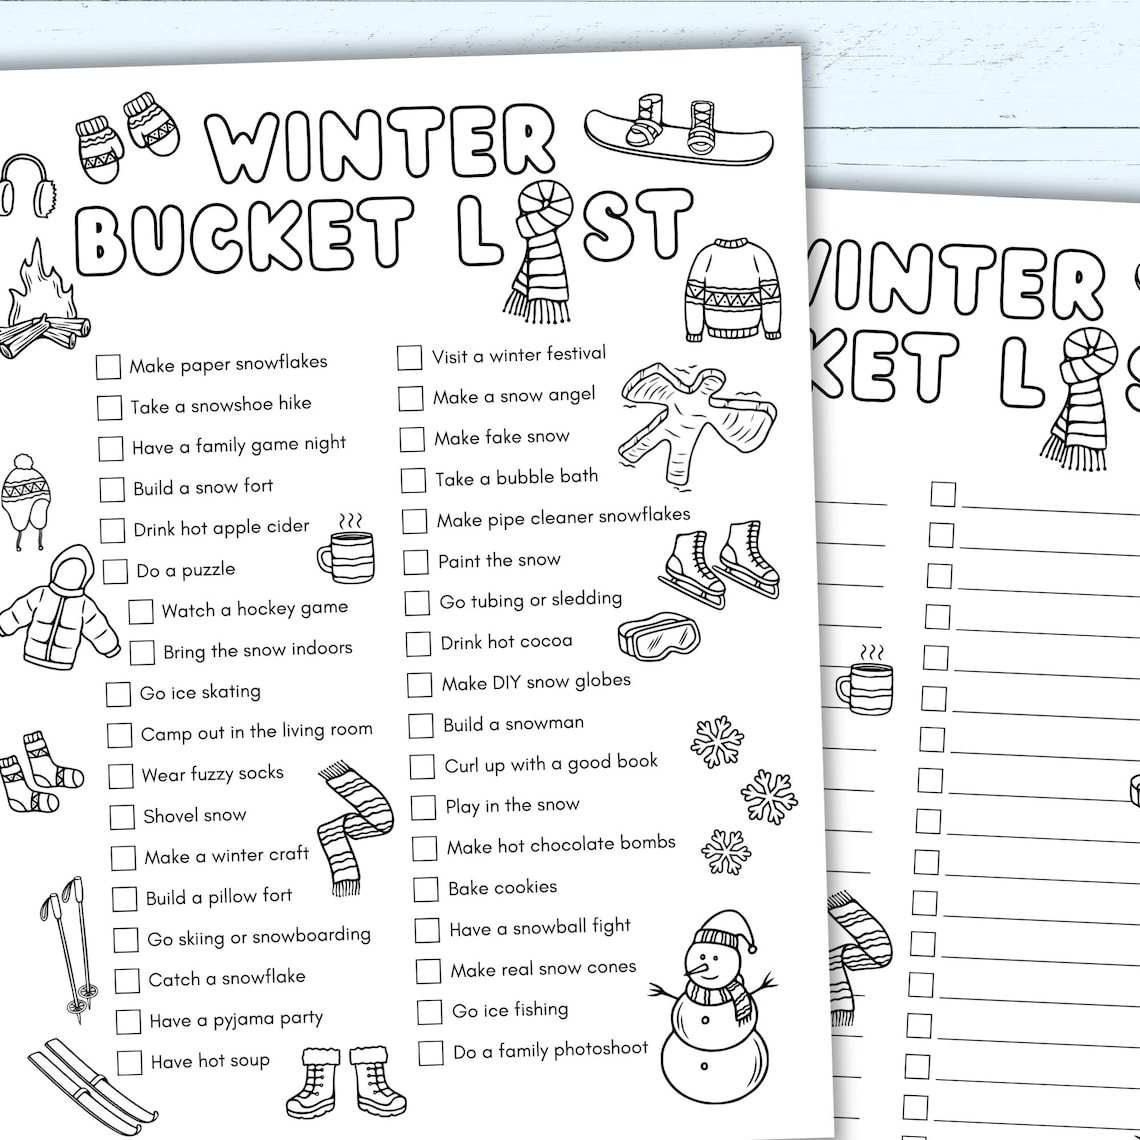 WINTER
BUCKET LIST
Make paper snowflakes
Take a snowshoe hike
Have a family game night
Build a snow fort
Drink hot apple cider
Do a puzzle
Watch a hockey game
Bring the snow indoors
Go ice skating
Camp out in the living room
Wear fuzzy socks
Shovel snow
Make a winter craft
Build a pillow fort
Go skiing or snowboarding
Catch a snowflake
Have a pyjama party
Have hot soup
Visit a winter festival
Make a snow angel
Make fake snow
Take a bubble bath
Make pipe cleaner snowflakes
Paint the snow
Go tubing or sledding
Drink hot cocoa
Make DIY snow globes
Build a snowman
Curl up with a good book
Play in the snow
Make hot chocolate bombs
Bake cookies
Have a snowball fight
Make real snow cones
Go ice fishing
Do a family photoshoot
WINTER
KET LIS